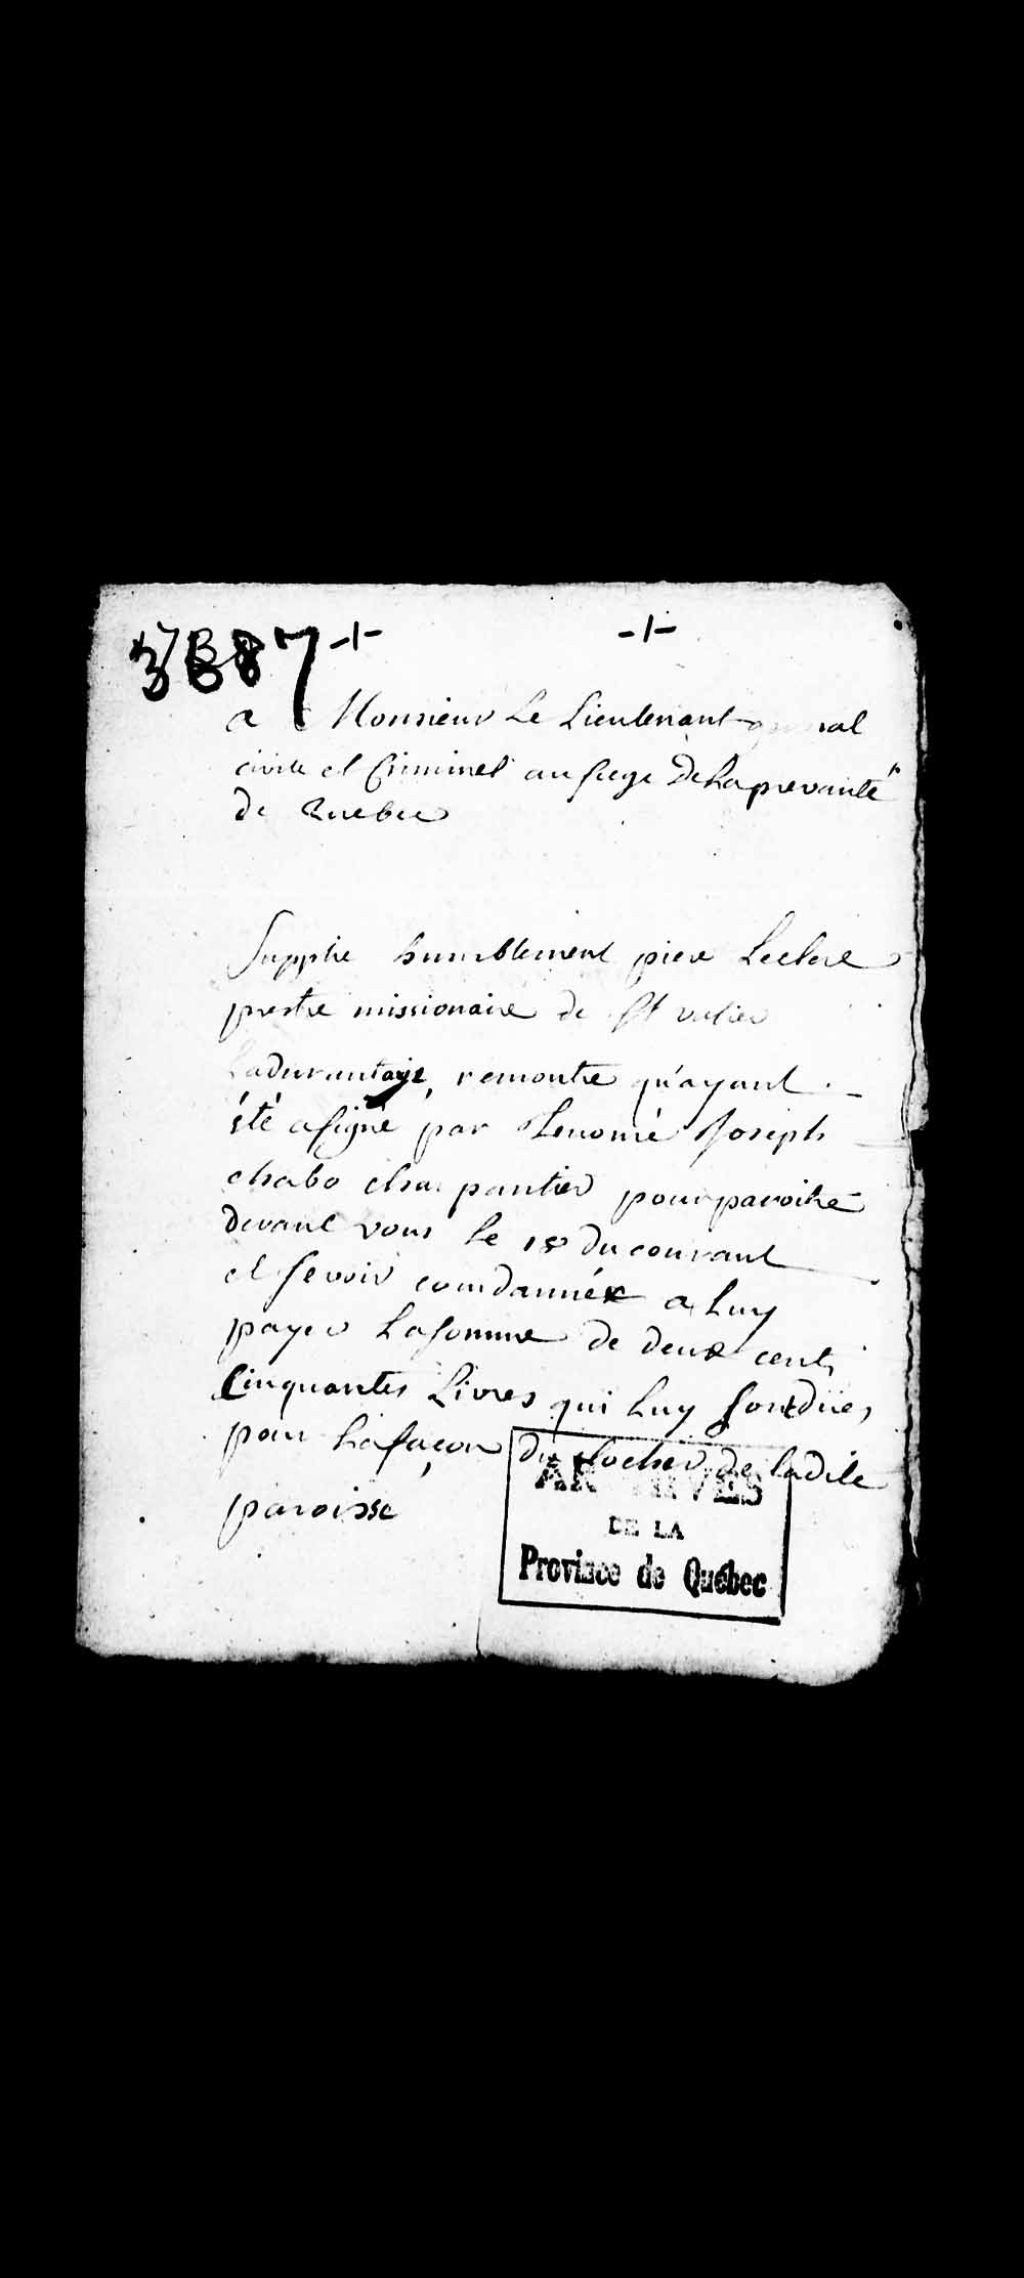 -1- -1-
a Monsieur Le Lieutenant
civile et Criminel au siege De La prevauté
de Quebec
Supplie humblement piere Leclerc
prestre missionaire de St valier
Ladurantaye, remontre qu'ayant
été asigné par Lenomé Joseph
chabo charpantier pour paroitre
devant vous le 18 du courant
et se voir comdanné a luy
payer La somme de deux cents
Cinquantes Livres qui luy sont düe,
pour La façon du clocher de ladite
paroisse
ARCHIVES
DE LA
Province de Québec